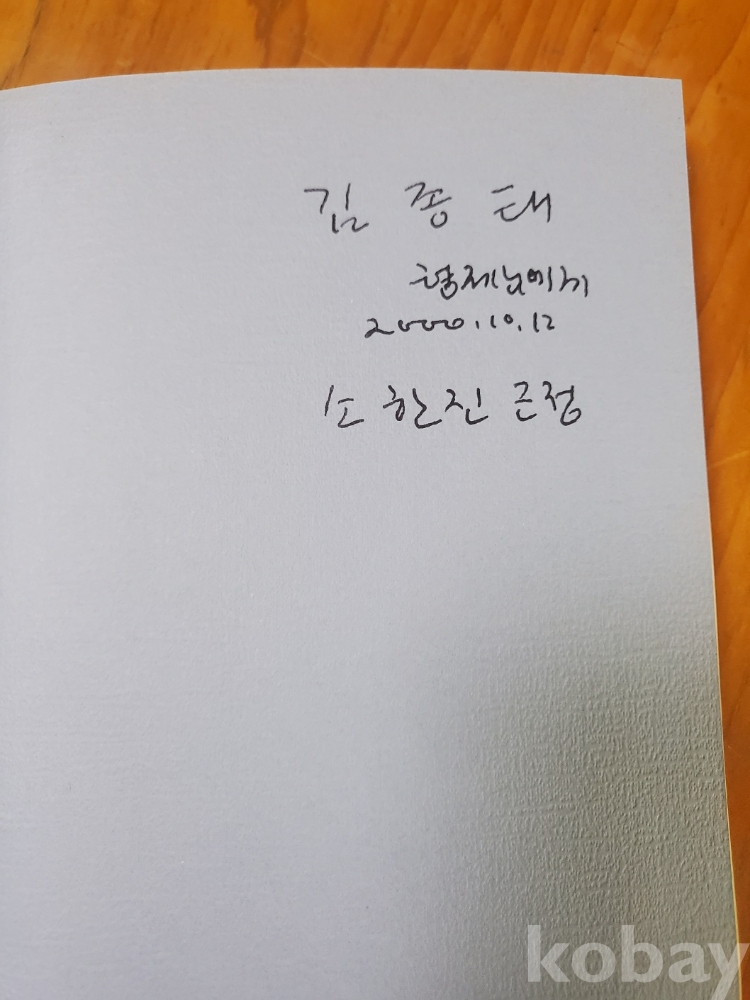 김 종 태
형제님에게
2000.10.12
소 한 진 근정
kobay